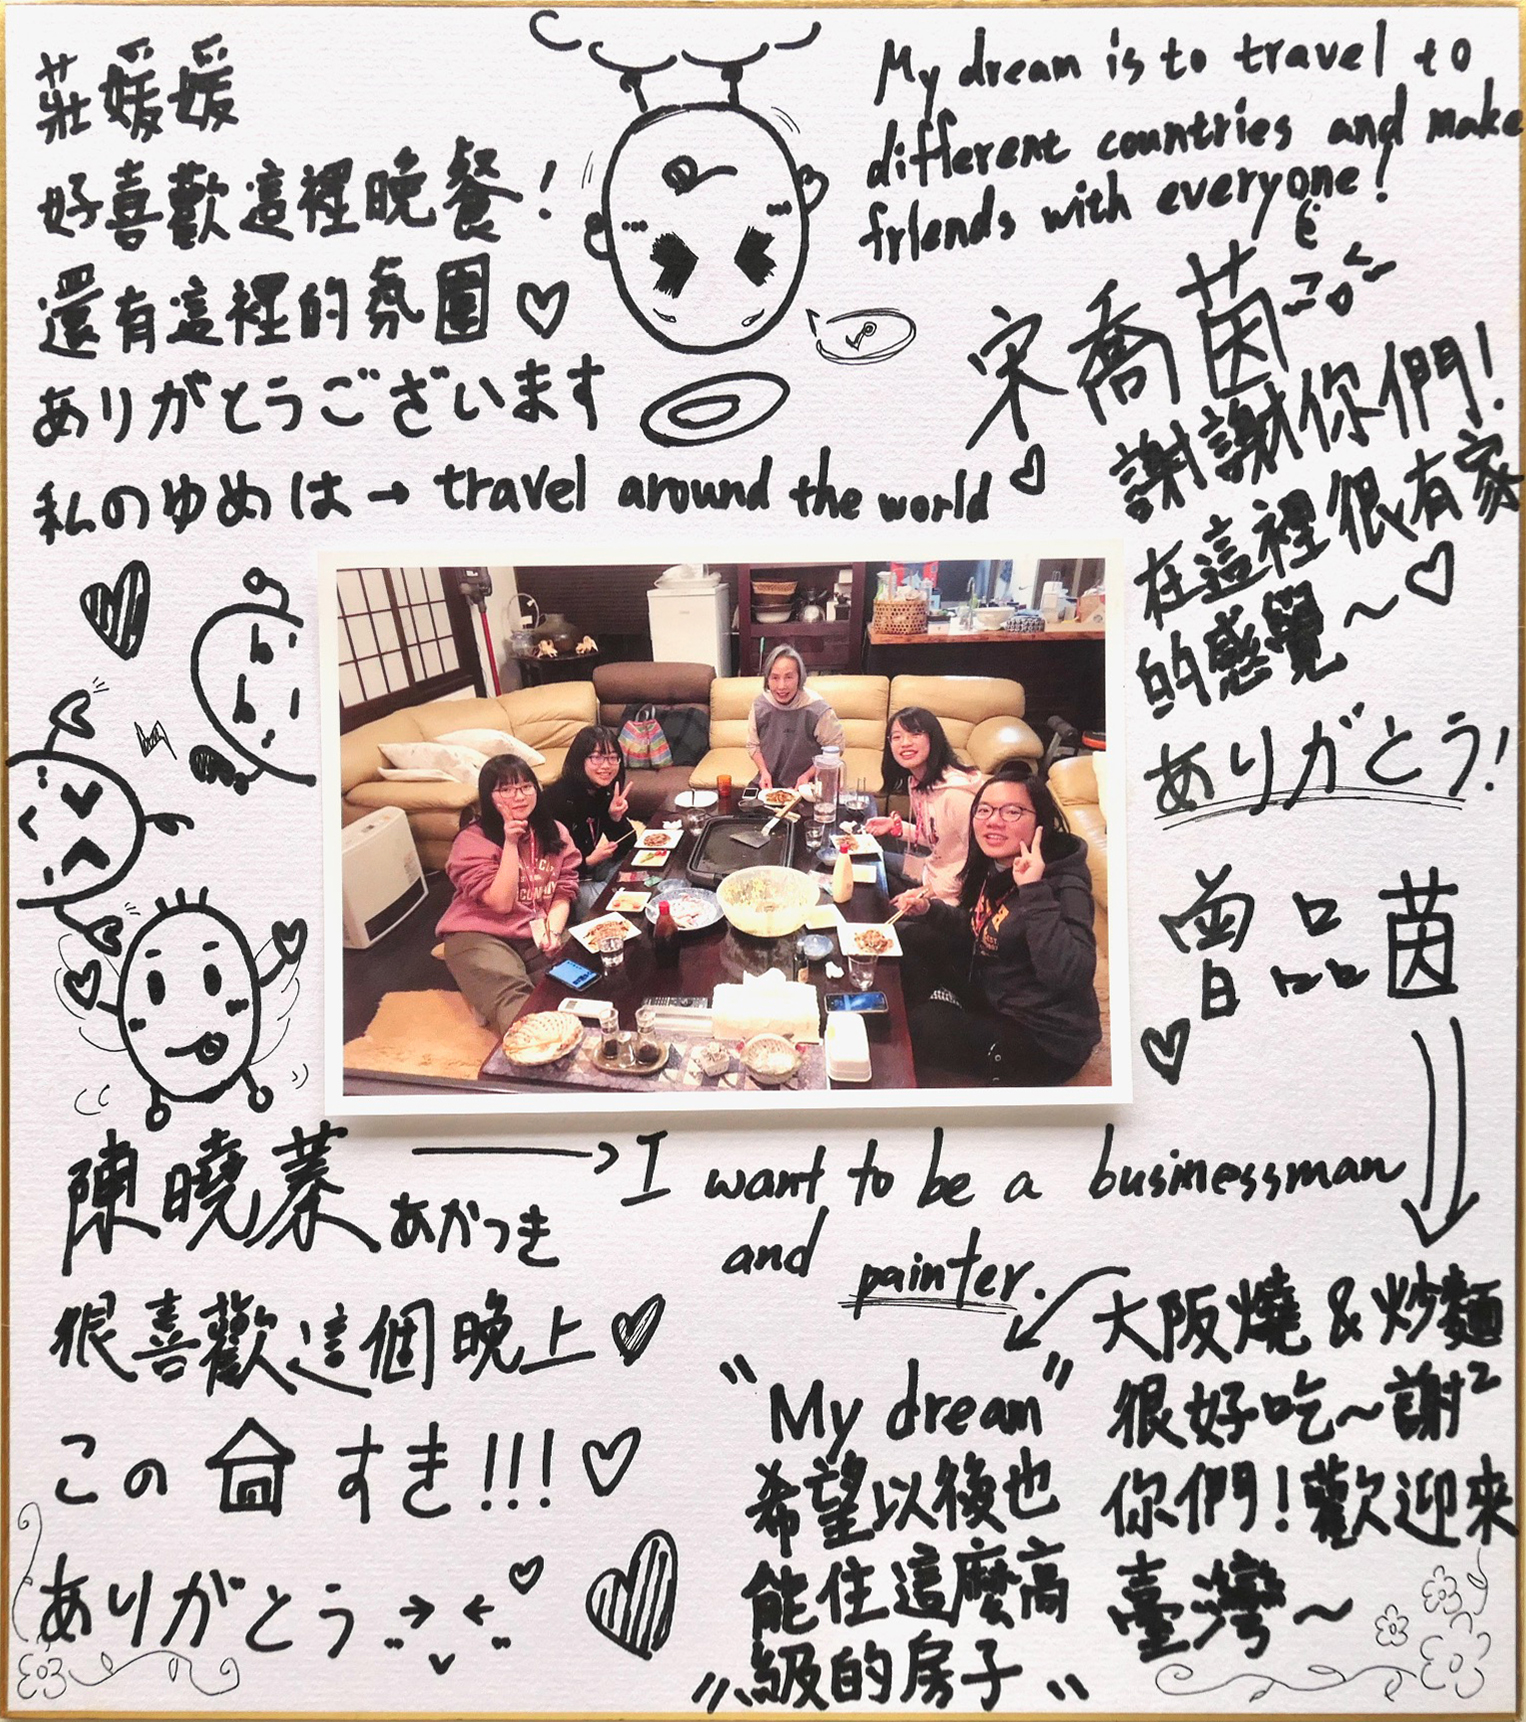 莊媛媛
好喜歡這裡晚餐!
還有這裡的氛圍♡
ありがとうございます
私のゆめは→travel around the world
My dream is to travel to
different countries and make
friends with everyone!
宋喬茵
謝謝你們!
在這裡很有家
的感覺~♡
ありがとう!
曾品茵
大阪燒&炒麵
很好吃~謝²
你們!歡迎來
臺灣~
"My dream"
希望以後也
能住這麼高
級的房子"
陳曉蓁 あかつき
→I want to be a businessman
and painter.
很喜歡這個晚上
この すき!!!♡
ありがとう